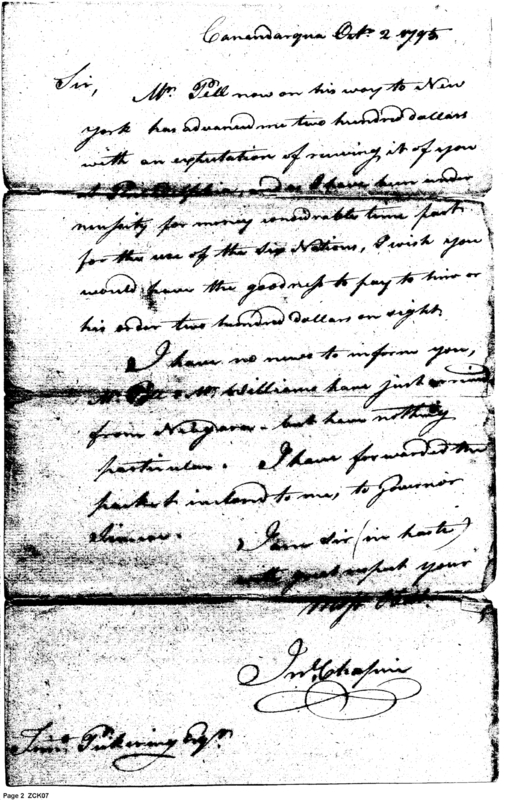 Canandarqua Octr. 2 1795
Sir,
Mr. Pell now on his way to New
york has advanced me two hundred dollars
with an expectation of receiving it of you
at Philadelphia, and as I have been under
necessity for money considrable time past
for the use of the Six Nations, I wish you
would have the goodness to pay to him or
his order two hundred dollars on sight.
I have no news to inform you,
Mr. Pell & Mr. Williams have just arrived
from Niagara - but have nothing
particular. I have forwarded the
packet inclosed to me, to Governor
Simcoe.
I am Sir (in haste)
with great respect your
most Obdt.
Chapin
Timo. Pickering Esqr.
Page 2 ZCK07